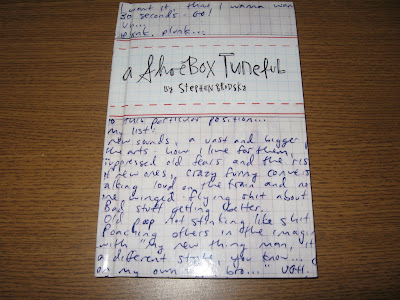 I want it, then I wanna wan
30 seconds. Go!
Un...
plunk. plunk...
a ShoeBox Tuneful
BY STEPHEN BRODSKY
to such particular position...
My list:
new sounds, a vast and bigger
the arts - how I live for them,
suppressed old fears and the ris
a few ones, crazy funny convers
alking loud on the train and no
ne winged flying shit about
Bad stuff getting better.
Old poop not stinking like shit
Poaching others in the imagin
with "my new thing man, it
different stroke, you know...
on my own bro..." UGH.